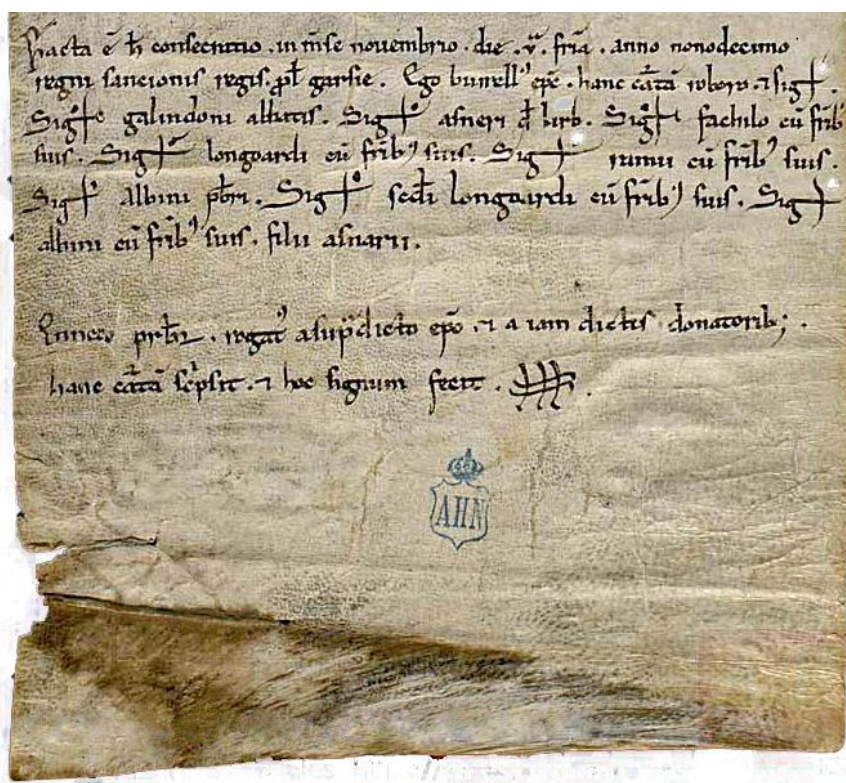 Facta ē h̄ consecratio . in m̄se novembrio . die . v̄ . fr̄ia . anno nonodecimo
regni sancionis regis . pl̄ garsie . Ego burrell᾽ ep̄e . hanc cārtā roboro . ⁊ sig+ .
Sig+ galindoni abbatis . Sig+ asneri d̄ lirb . Sig+ fachilo cū fr̄ib᾽
suis . Sig+ longoardi cū fr̄ib᾽ suis . Sig+ cū fr̄ib᾽ suis .
Sig+ Albini pb̄ri . Sig+ longoardi cū fr̄ib᾽ suis . Sig+
albini cū fr̄ib᾽ suis . filii asnarii .
Enneco prb̄r . rogat᾽ a sup̄dicto ep̄o . ⁊ a iam dictis donatorib; .
hanc cārtā sc̄psit . ⁊ hoc signum fecit .
AHN